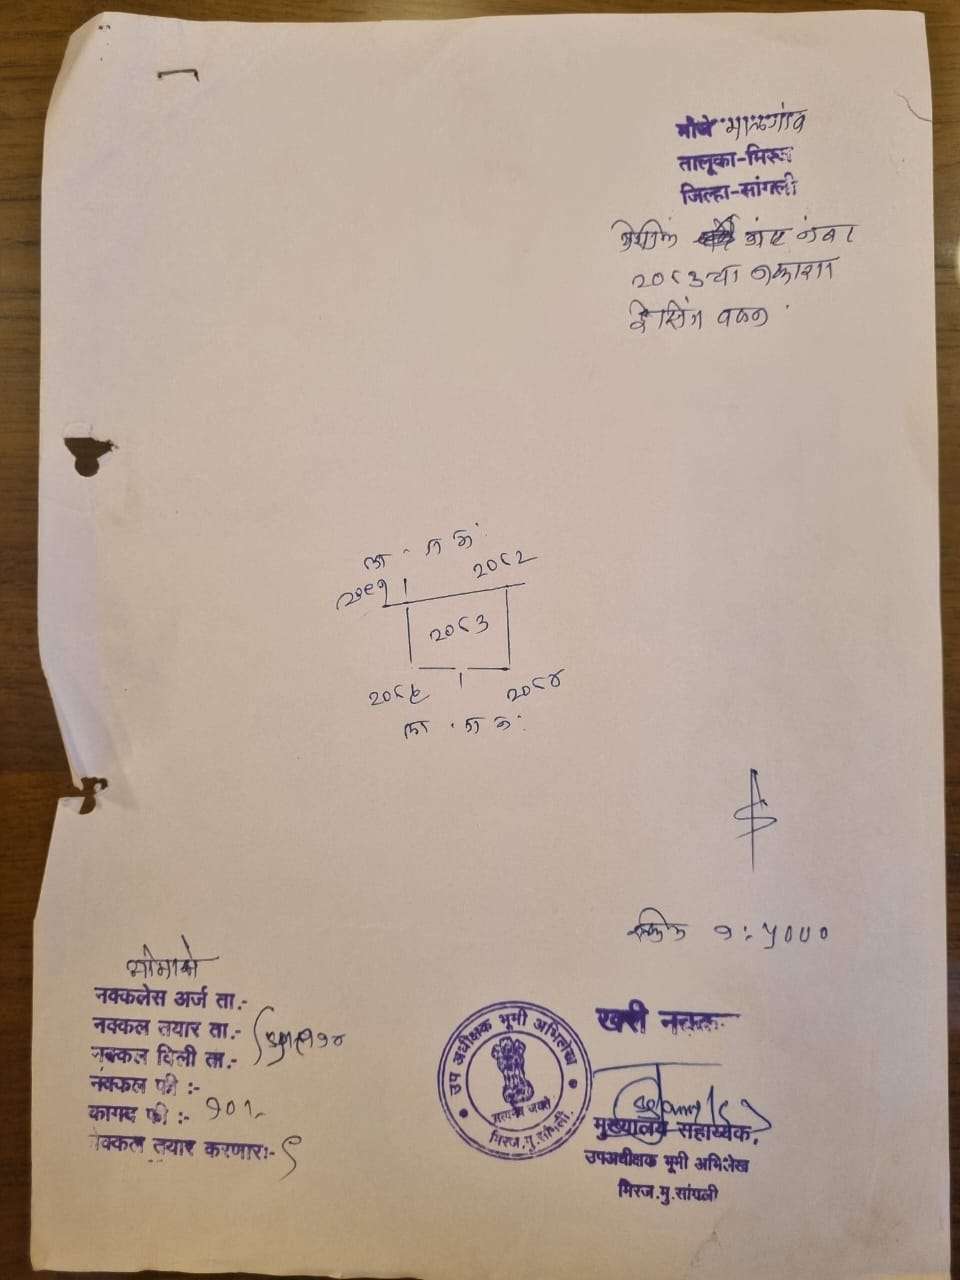 मौजे मालगांव
तालूका-मिरज
जिल्हा-सांगली
येथील गट नंबर
२०८३ चा नकाशा
ट्रेसिंग वरुन
२०८२
२०८३
२०८५ २०८४
स्केल १:५०००
नक्कलेस अर्ज ता.-
नक्कल तयार ता.-
नक्कल दिली ता.-
नक्कल फी :-
कागद फी :- १०/-
नक्कल तयार करणारः-
उप अधीक्षक भूमी अभिलेख
सत्यमेव जयते
मिरज.मु.सांगली.
खरी नक्कल
मुख्यालय सहाय्यक,
उपअधीक्षक भूमी अभिलेख
मिरज.मु.सांगली